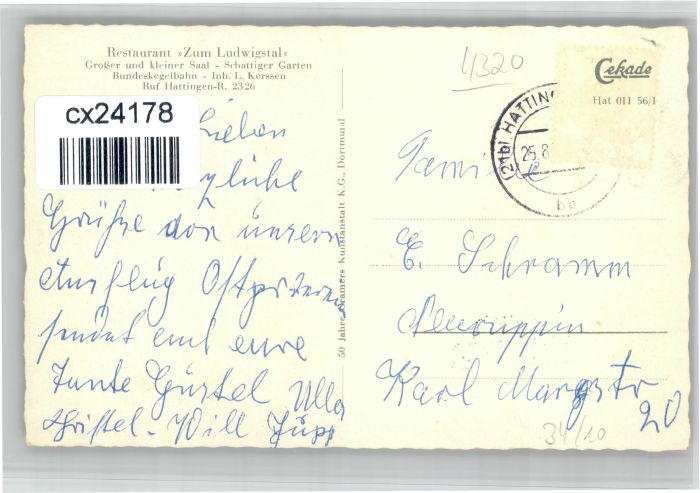 Restaurant »Zum Ludwigstal«
Großer und kleiner Saal - Schattiger Garten
Bundeskegelbahn - Inh. L. Kerssen
Ruf Hattingen-R. 2326
cx24178
Lieben
Grüße von unsern
Ausflug
sendet euch eure
Tante Gustel Ulla
Christel. Willi Jupp
50 Jahre Cramers Kunstanstalt K.G., Dortmund
4320
Cekade
Hat 011 56/1
(21b) HATTING
25.8
bb
Familie
E. Schramm
Neuruppin
Karl Marxstr
20
34/10